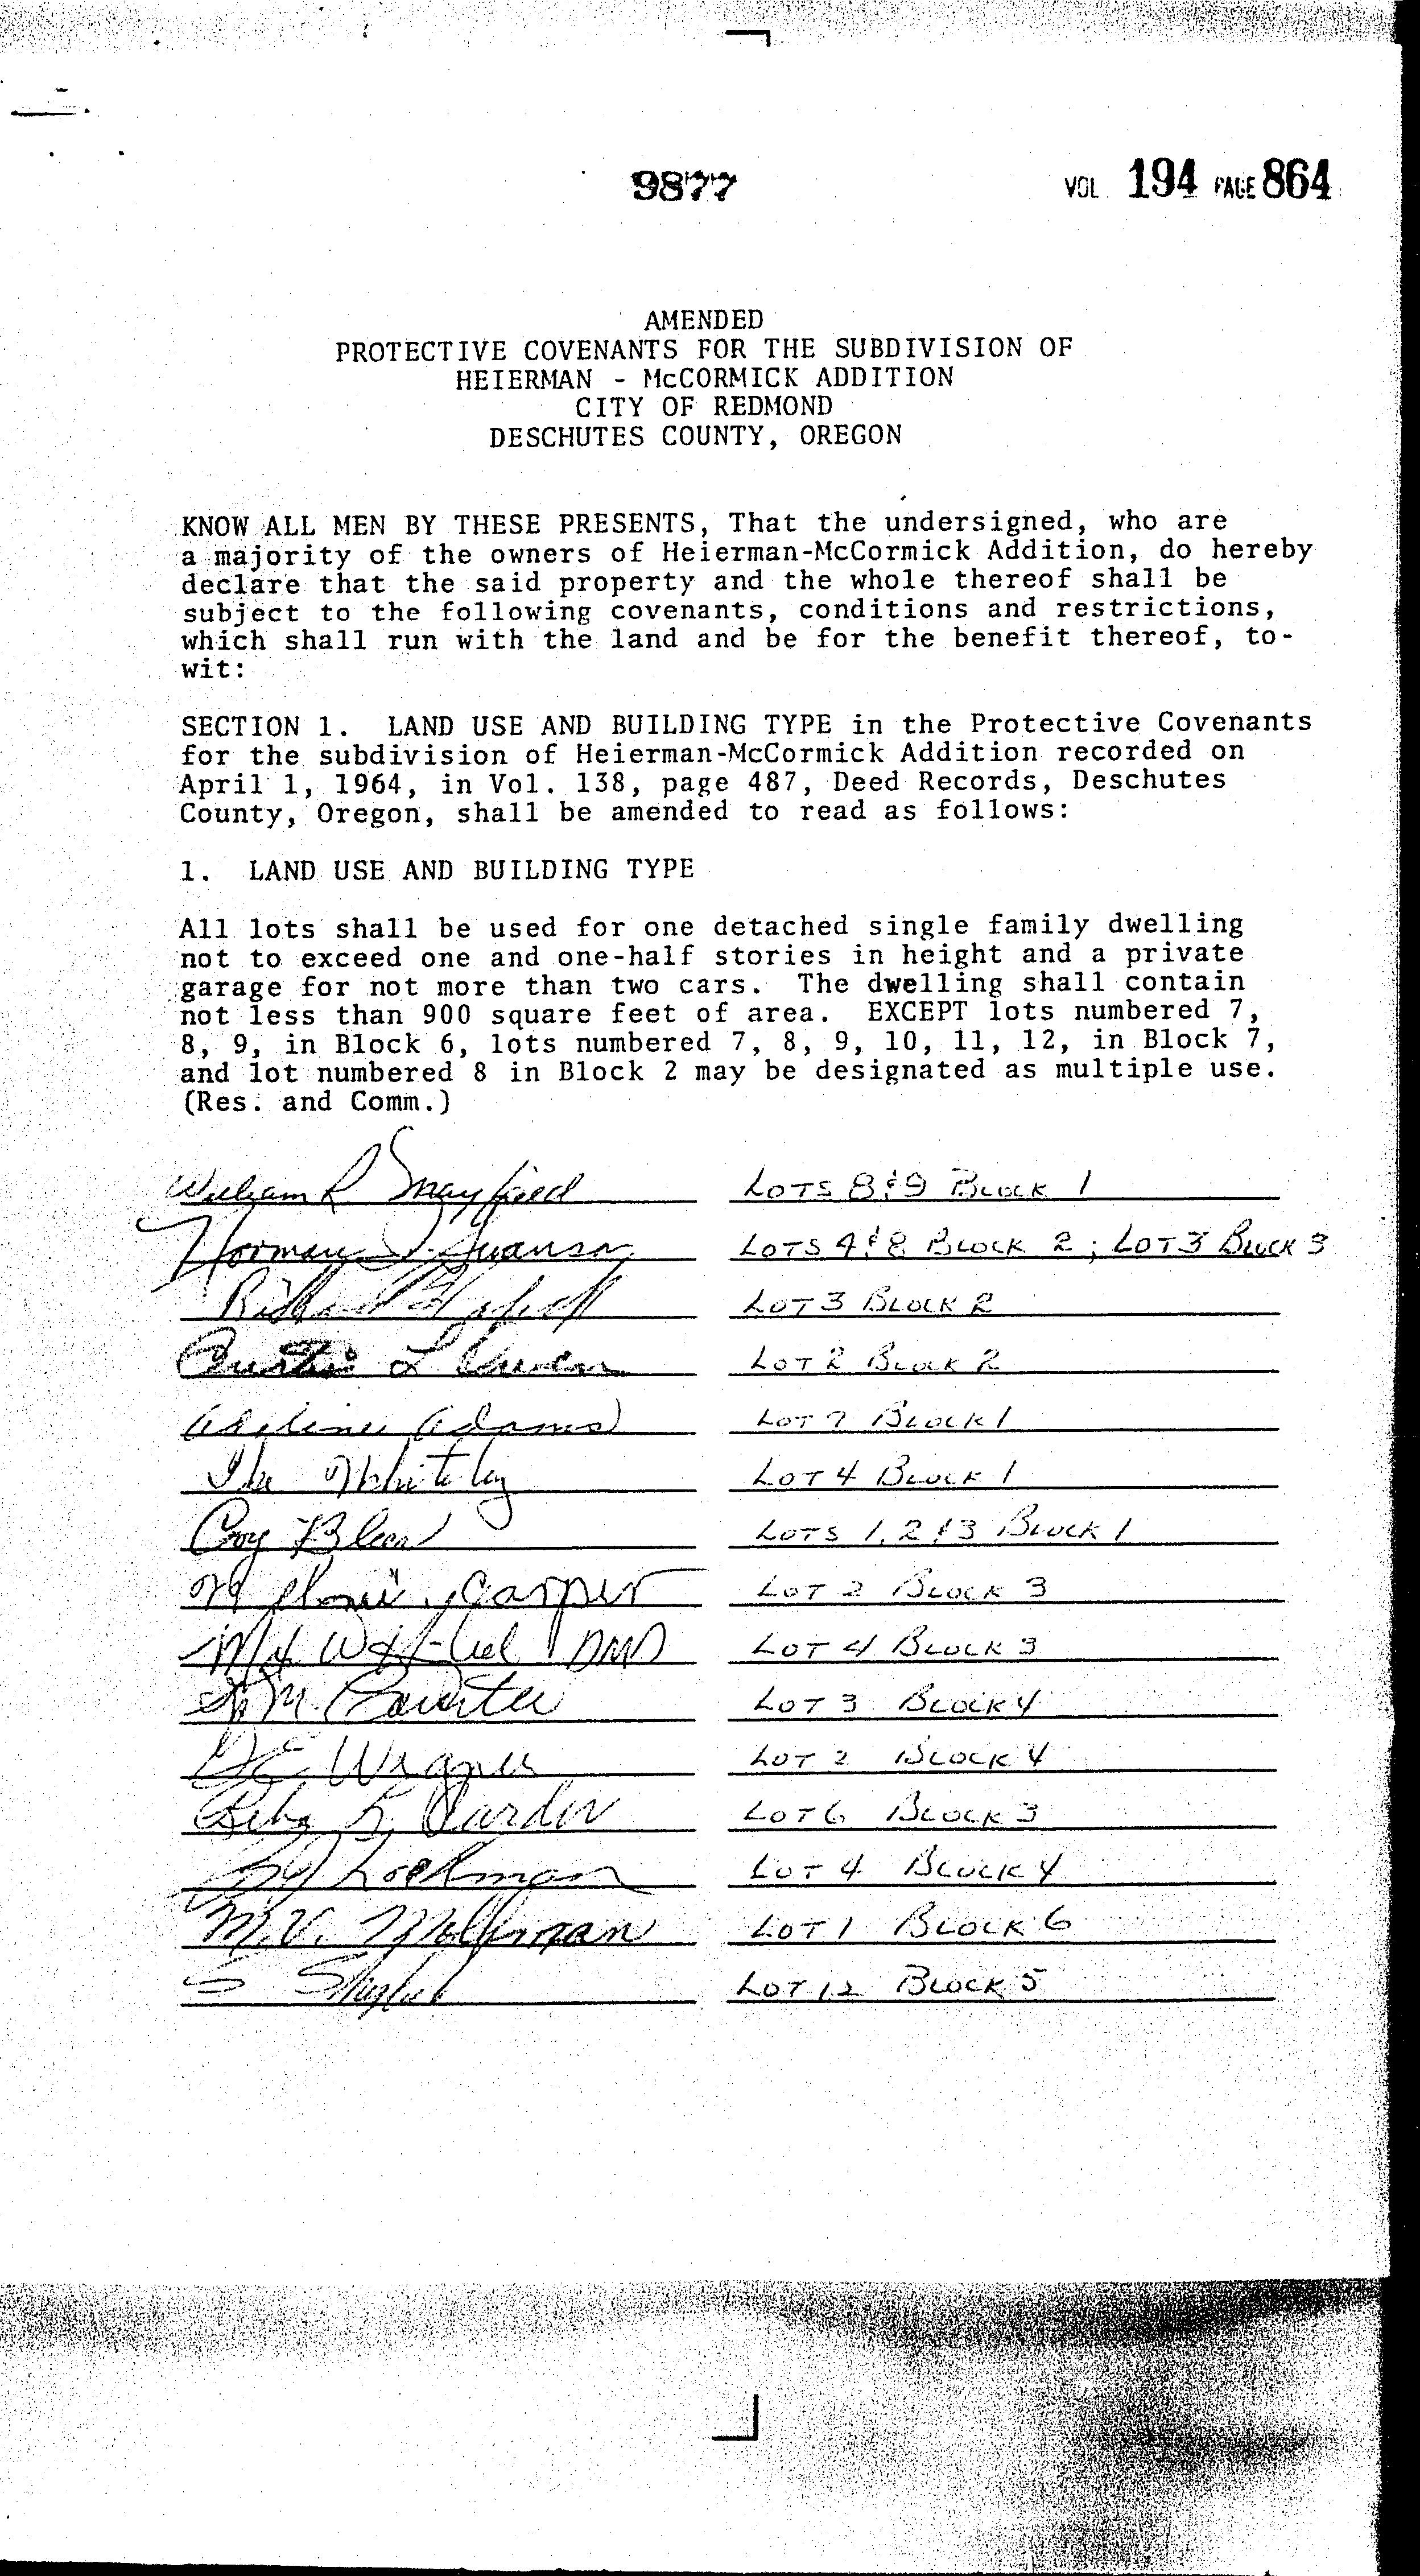 9877
VOL 194 PAGE 864
AMENDED
PROTECTIVE COVENANTS FOR THE SUBDIVISION OF
HEIERMAN - McCORMICK ADDITION
CITY OF REDMOND
DESCHUTES COUNTY, OREGON
KNOW ALL MEN BY THESE PRESENTS, That the undersigned, who are
a majority of the owners of Heierman-McCormick Addition, do hereby
declare that the said property and the whole thereof shall be
subject to the following covenants, conditions and restrictions,
which shall run with the land and be for the benefit thereof, to-
wit:
SECTION 1. LAND USE AND BUILDING TYPE in the Protective Covenants
for the subdivision of Heierman-McCormick Addition recorded on
April 1, 1964, in Vol. 138, page 487, Deed Records, Deschutes
County, Oregon, shall be amended to read as follows:
1. LAND USE AND BUILDING TYPE
All lots shall be used for one detached single family dwelling
not to exceed one and one-half stories in height and a private
garage for not more than two cars. The dwelling shall contain
not less than 900 square feet of area. EXCEPT lots numbered 7,
8, 9, in Block 6, lots numbered 7, 8, 9, 10, 11, 12, in Block 7,
and lot numbered 8 in Block 2 may be designated as multiple use.
(Res. and Comm.)
William R Mayfield LOTS 8 & 9 BLOCK 1
Norman Swanson LOTS 4 & 8 BLOCK 2; LOT 3 BLOCK 3
Richard LOT 3 BLOCK 2
Curtis L LOT 2 BLOCK 2
Adeline Adams LOT 7 BLOCK 1
Ike Whiteley LOT 4 BLOCK 1
Coy LOTS 1, 2 & 3 BLOCK 1
Casper LOT 2 BLOCK 3
DMD LOT 4 BLOCK 3
M. LOT 3 BLOCK 4
Wagner LOT 2 BLOCK 4
LOT 6 BLOCK 3
LOT 4 BLOCK 4
M.V. LOT 1 BLOCK 6
LOT 12 BLOCK 5